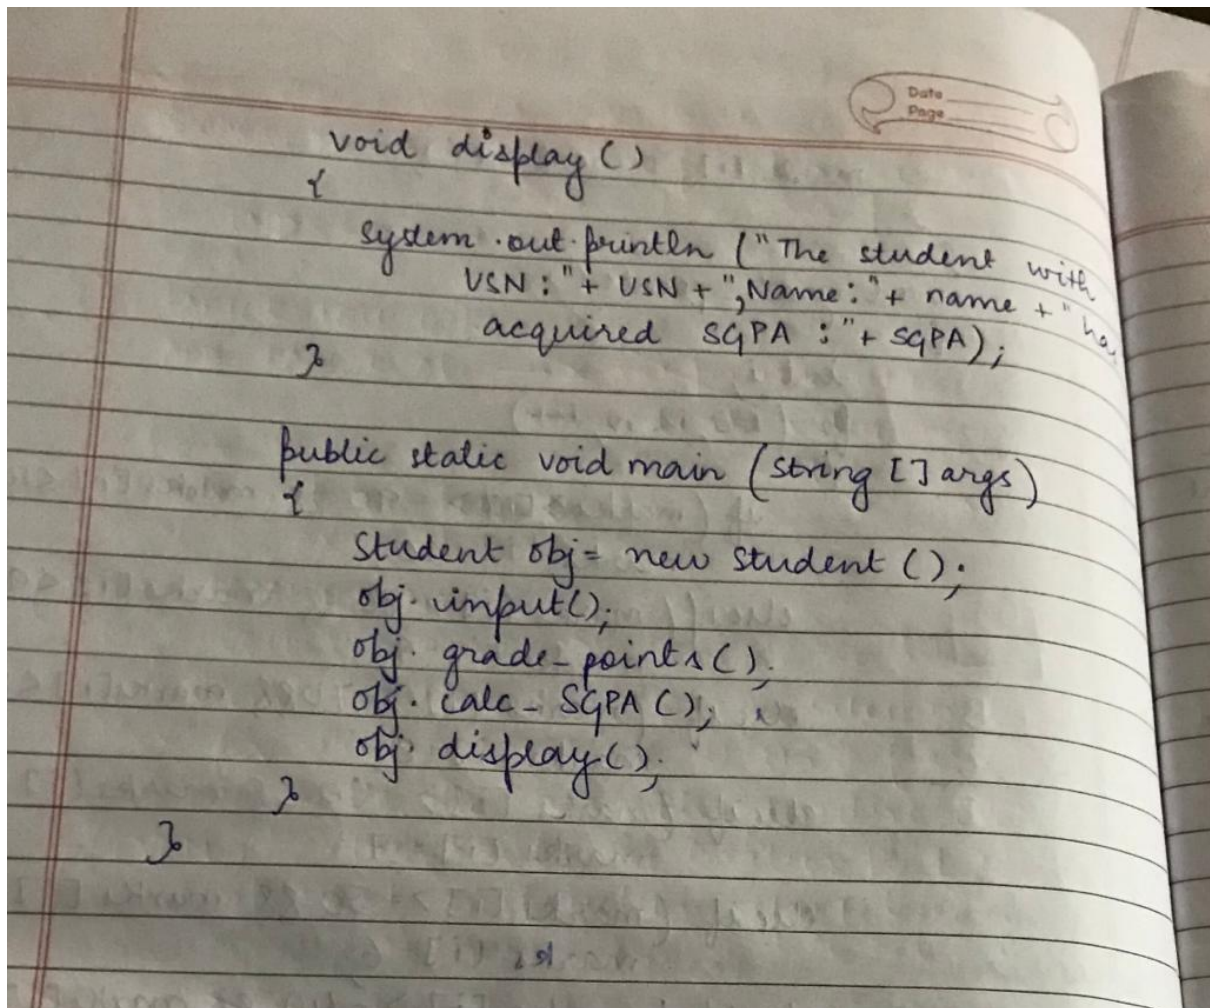 Date
Page
void display ()
{
system.out.println ("The student with
USN : "+ USN + ", Name : "+ name + "
acquired SGPA : "+ SGPA);
}
public static void main (string [] args)
{
student obj = new student ();
obj. input();
obj. grade_points();
obj. calc_SGPA ();
obj. display();
}
}